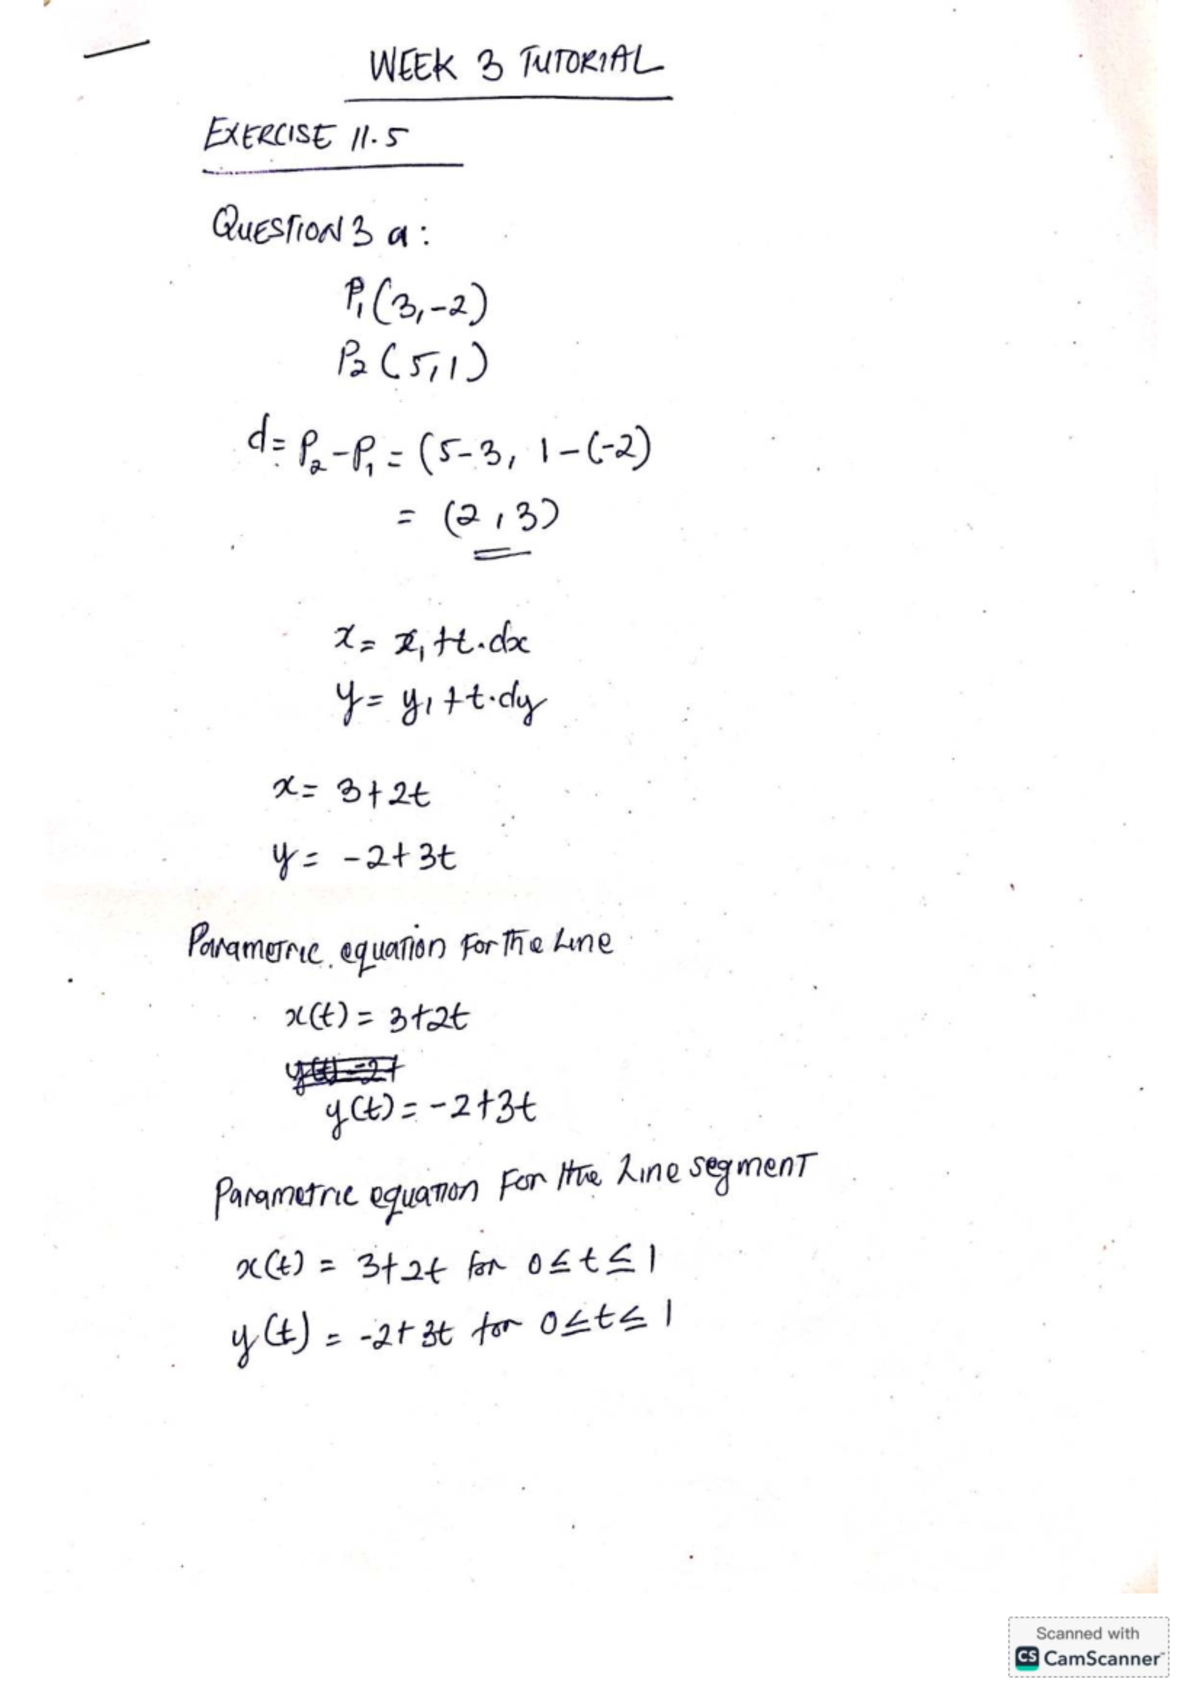 WEEK 3 TUTORIAL
EXERCISE 11.5
QUESTION 3 a:
P₁(3,-2)
P₂(5,1)
d= P₂-P₁ = (5-3, 1-(-2)
= (2,3)
x= x₁+t.dx
y= y₁+t.dy
x= 3+2t
y= -2+3t
Parametric equation For The Line
x(t) = 3+2t
y(t) = -2+3t
Parametric equation For the Line segment
x(t) = 3+2t for 0≤t≤1
y(t) = -2+3t for 0≤t≤1
Scanned with
CS CamScanner